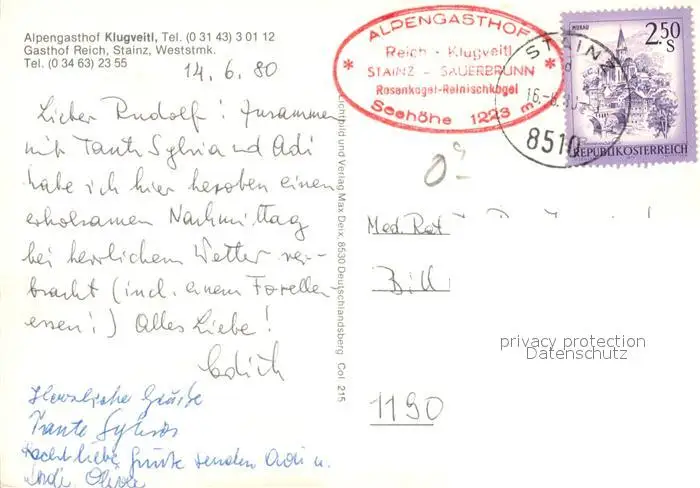 Alpengasthof Klugveitl, Tel. (0 31 43) 3 01 12
Gasthof Reich, Stainz, Weststmk.
Tel. (0 34 63) 23 55
14. 6. 80
Lieber Rudolf! Zusammen
mit Tante Sylvia und Adi
habe ich hier heroben einen
erholsamen Nachmittag
bei herrlichem Wetter ver-
bracht (incl. einem Forellen-
essen!) Alles Liebe!
Edith
Herzliche Grüße
Tante Sylvia
Recht liebe Grüße senden Adi u.
Lichtbild und Verlag Max Deix, 8530 Deutschlandsberg Col. 215
ALPENGASTHOF
Reich - Klugveitl
STAINZ - SAUERBRUNN
Rosenkogel-Reinischkogel
Seehöhe 1223 m
STAINZ
8510
MURAU
2.50 S
REPUBLIK ÖSTERREICH
Med. Rat
Bill
1190
privacy protection
Datenschutz